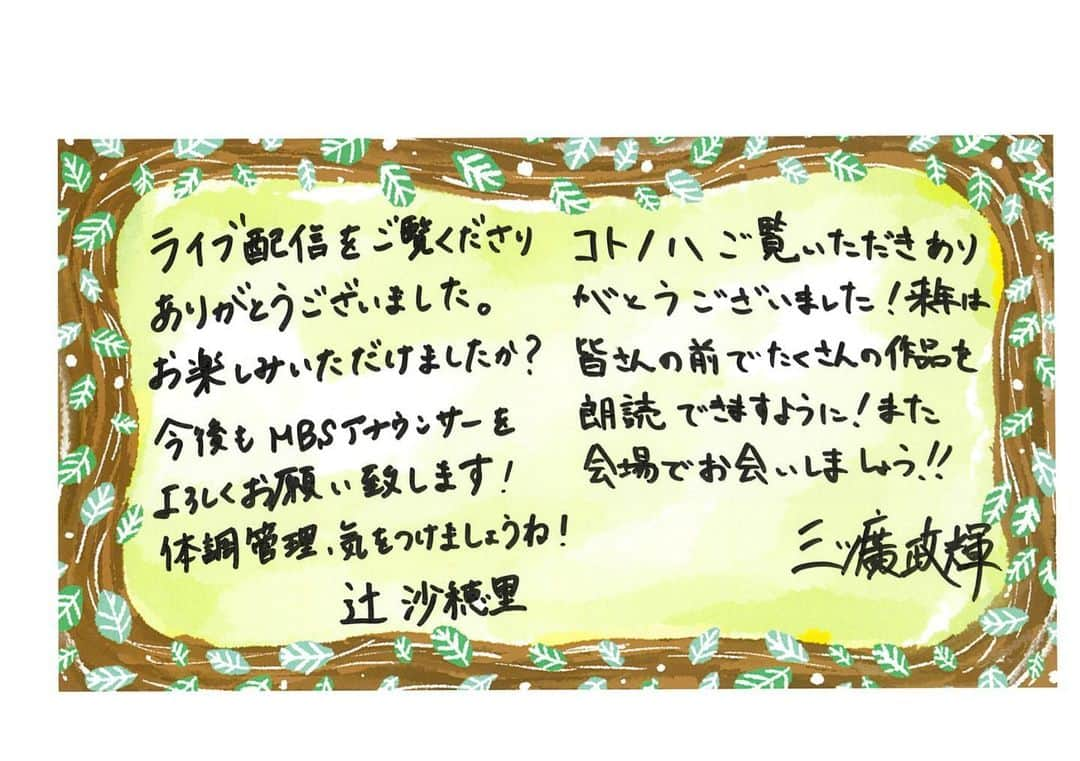 ライブ配信をご覧くださり
ありがとうございました。
お楽しみいただけましたか？
今後もMBSアナウンサーを
よろしくお願い致します！
体調管理、気をつけましょうね！
辻 沙穂里
コトノハ ご覧いただきあり
がとうございました！来年は
皆さんの前でたくさんの作品を
朗読できますように！また
会場でお会いしましょう!!
三ッ廣政輝